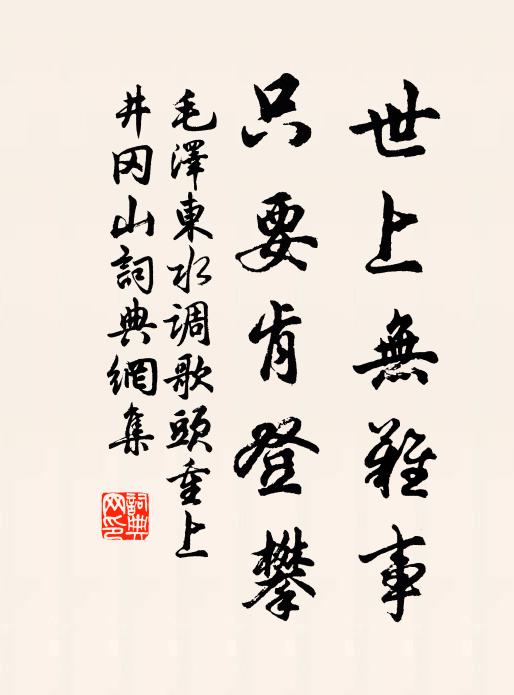 世上無難事
只要肯登攀
毛澤東水调歌頭重上
井冈山詞典網集
詞典网印